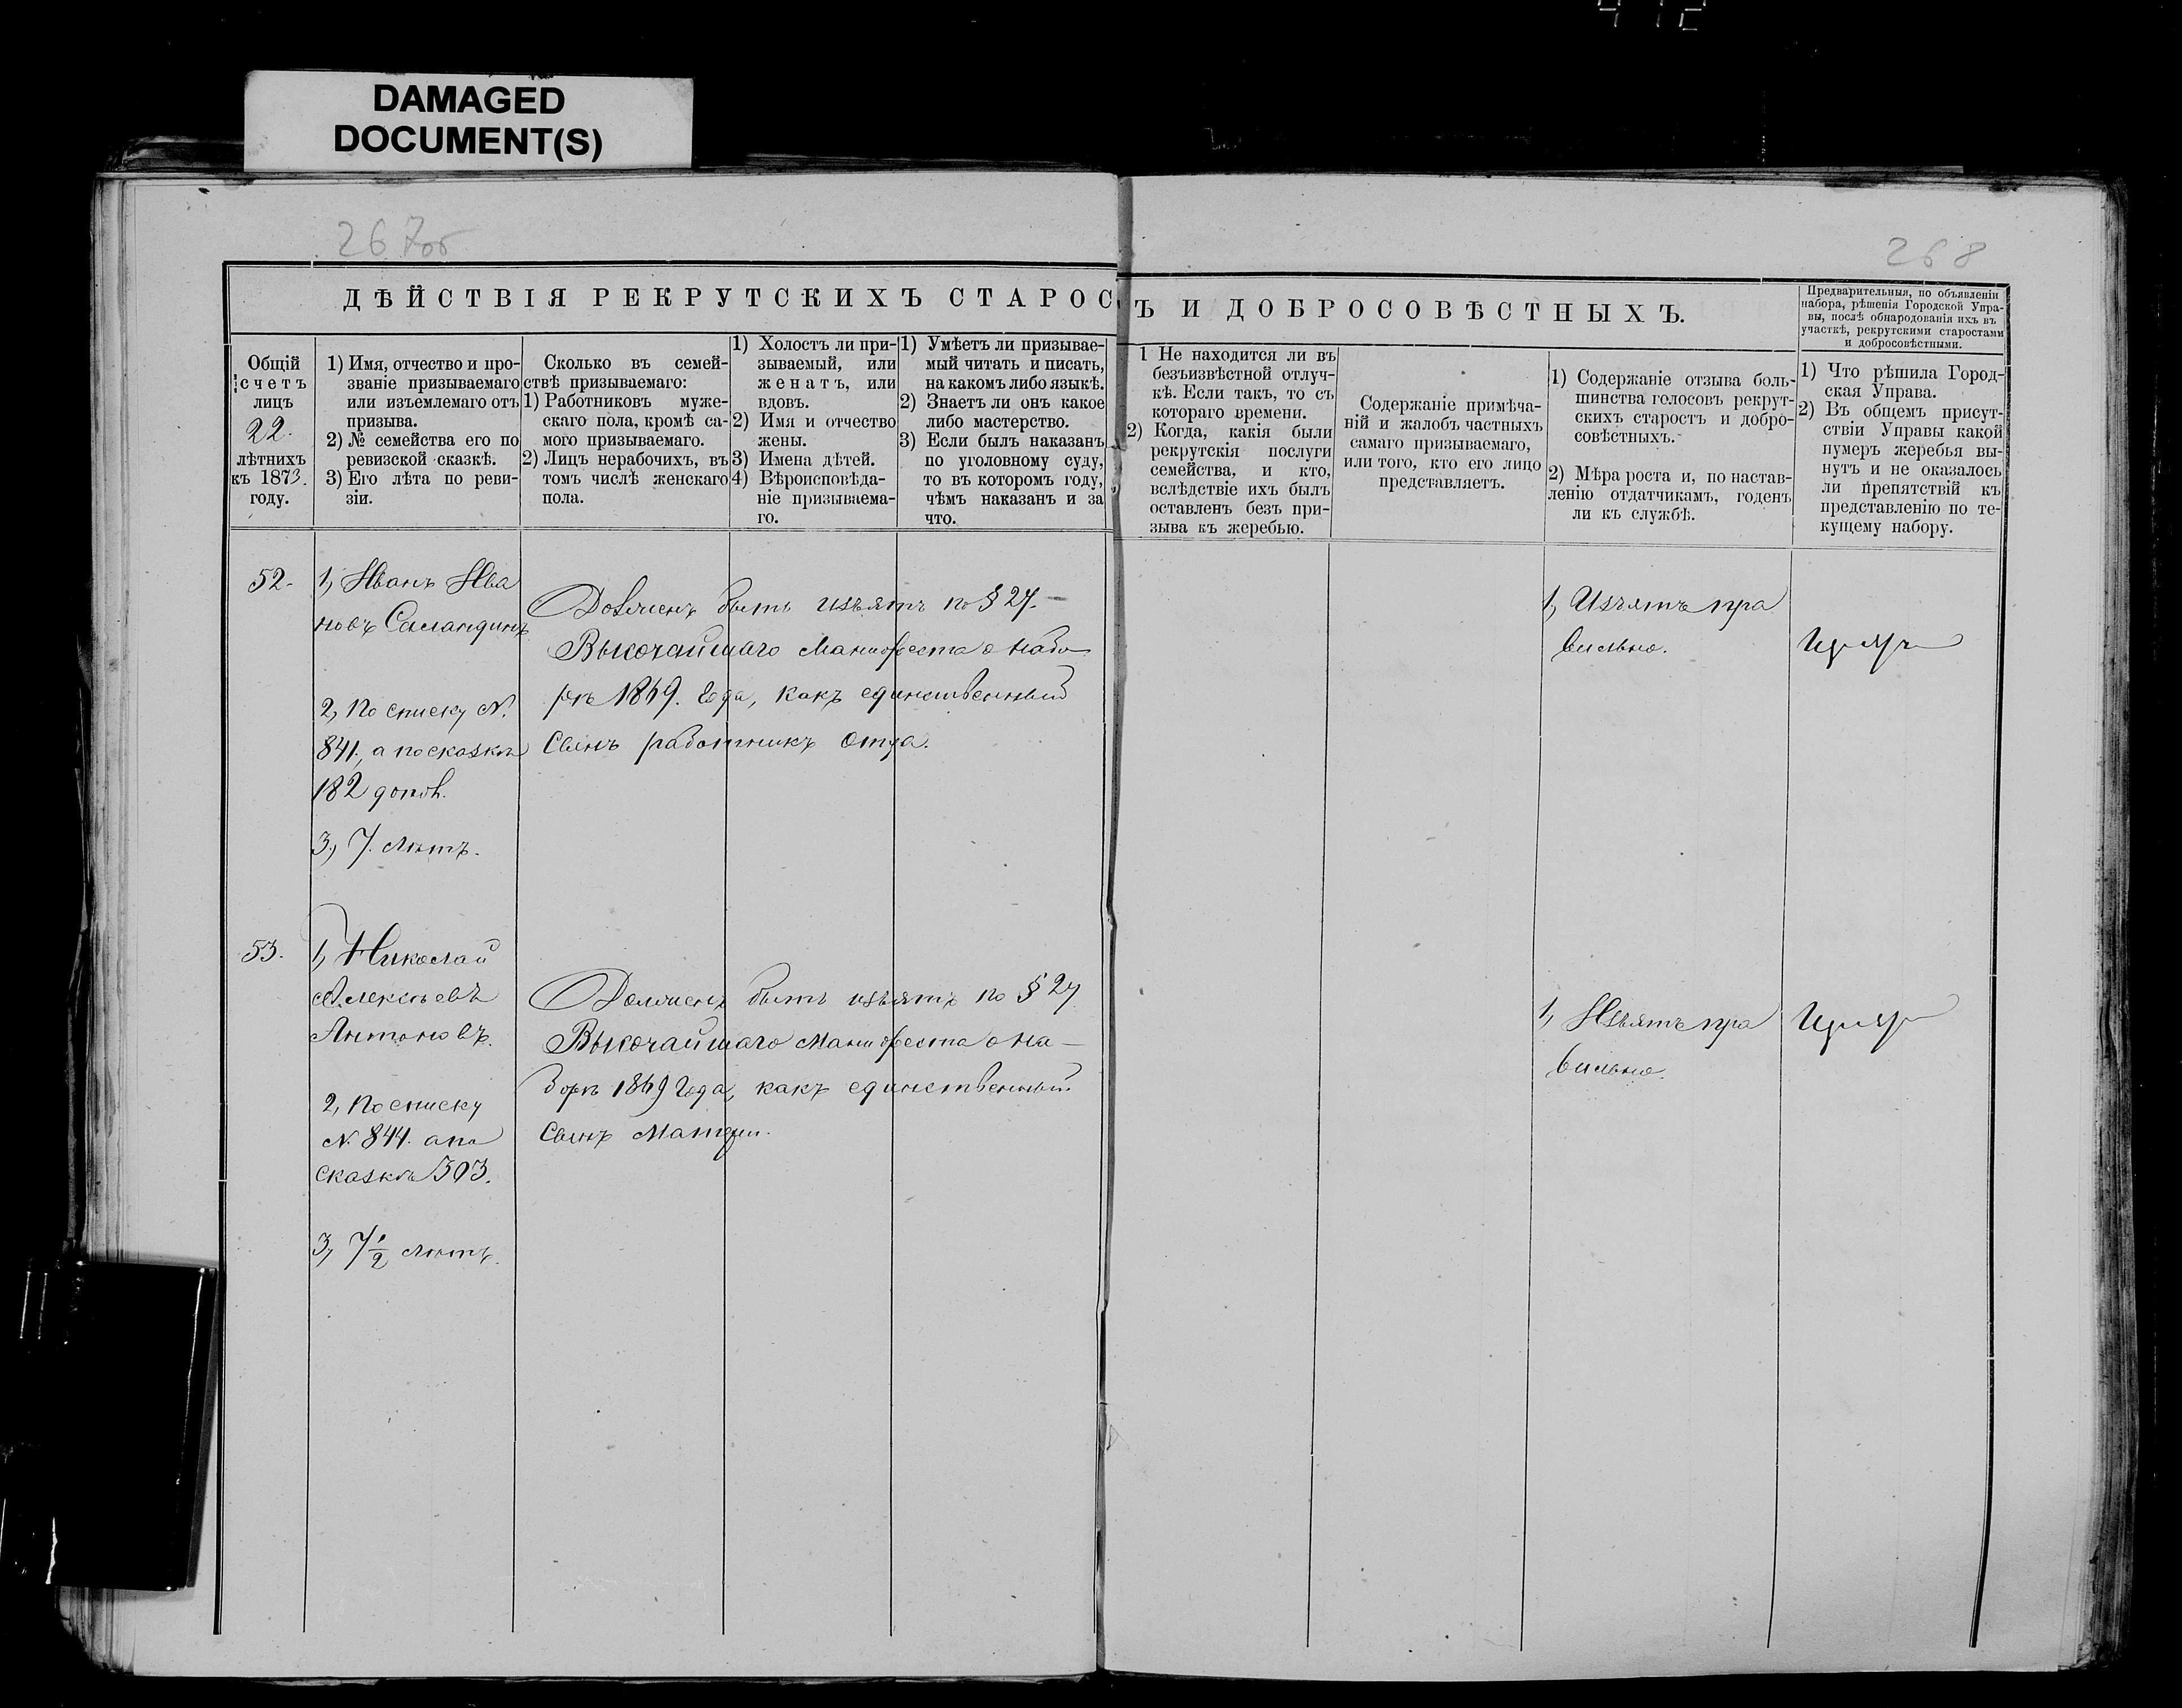 412
DAMAGED
DOCUMENT(S)
267об
268
ДѢЙСТВІЯ РЕКРУТСКИХЪ СТАРОСТЪ И ДОБРОСОВѢСТНЫХЪ.
Предварительныя, по объявленіи
набора, рѣшенія Городской Упра-
вы, послѣ обнародованія ихъ въ
участкѣ, рекрутскими старостами
и добросовѣстными.
Общій
счетъ
лицъ
22.
лѣтнихъ
къ 1873.
году.
1) Имя, отчество и про-
званіе призываемаго
или изъемлемаго отъ
призыва.
2) № семейства его по
ревизской сказкѣ.
3) Его лѣта по реви-
зіи.
Сколько въ семей-
ствѣ призываемаго:
1) Работниковъ муже-
скаго пола, кромѣ са-
мого призываемаго.
2) Лицъ нерабочихъ, въ
томъ числѣ женскаго
пола.
1) Холостъ ли при-
зываемый, или
женатъ, или
вдовъ.
2) Имя и отчество
жены.
3) Имена дѣтей.
4) Вѣроисповѣда-
ніе призываема-
го.
1) Умѣетъ ли призывае-
мый читать и писать,
на какомъ либо языкѣ.
2) Знаетъ ли онъ какое
либо мастерство.
3) Если былъ наказанъ
по уголовному суду,
то въ которомъ году,
чѣмъ наказанъ и за
что.
1 Не находится ли въ
безъизвѣстной отлуч-
кѣ. Если такъ, то съ
котораго времени.
2) Когда, какія были
рекрутскія послуги
семейства, и кто,
вслѣдствіе ихъ былъ
оставленъ безъ при-
зыва къ жеребью.
Содержаніе примѣча-
ній и жалобъ частныхъ
самаго призываемаго,
или того, кто его лицо
представляетъ.
1) Содержаніе отзыва боль-
шинства голосовъ рекрут-
скихъ старостъ и добро-
совѣстныхъ.
2) Мѣра роста и, по настав-
ленію отдатчикамъ, годенъ
ли къ службѣ.
1) Что рѣшила Город-
ская Управа.
2) Въ общемъ присут-
ствіи Управы какой
нумеръ жеребья вы-
нутъ и не оказалось
ли препятствій къ
представленію по те-
кущему набору.
52.
1, Иванъ Ива
новъ Саландинъ
2, По списку №.
841, а по сказкѣ
182 допол.
3, 7. лѣтъ.
Долженъ быть изъятъ по § 27.
Высочайшаго Манифеста о набо
рѣ 1869. года, какъ единственный
Сынъ работникъ Отца.
1, Изъятъ пра
вильно.
Изъятъ
53.
1, Николай
Алексѣевъ
Антоновъ.
2, По списку
№. 844. а по
сказкѣ 303.
3, 7 1/2 лѣтъ.
Долженъ быть изъятъ по § 27
Высочайшаго Манифеста о на-
борѣ 1869 года, какъ единственный
Сынъ Матери.
1, Изъятъ пра
вильно.
Изъятъ